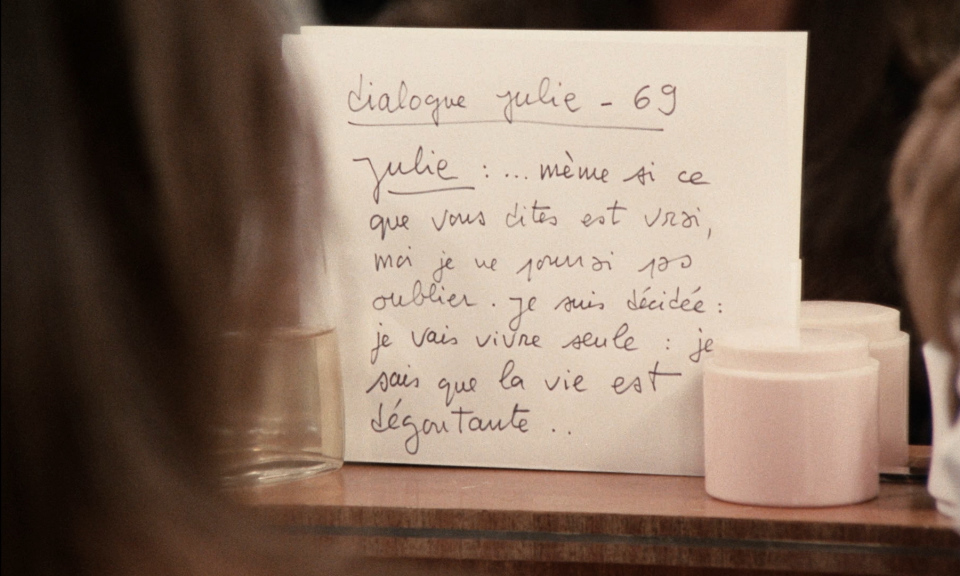 dialogue julie - 69
Julie : ... même si ce
que vous dites est vrai,
moi je ne pourrai pas
oublier. Je suis décidée :
je vais vivre seule : je
sais que la vie est
dégoutante ..